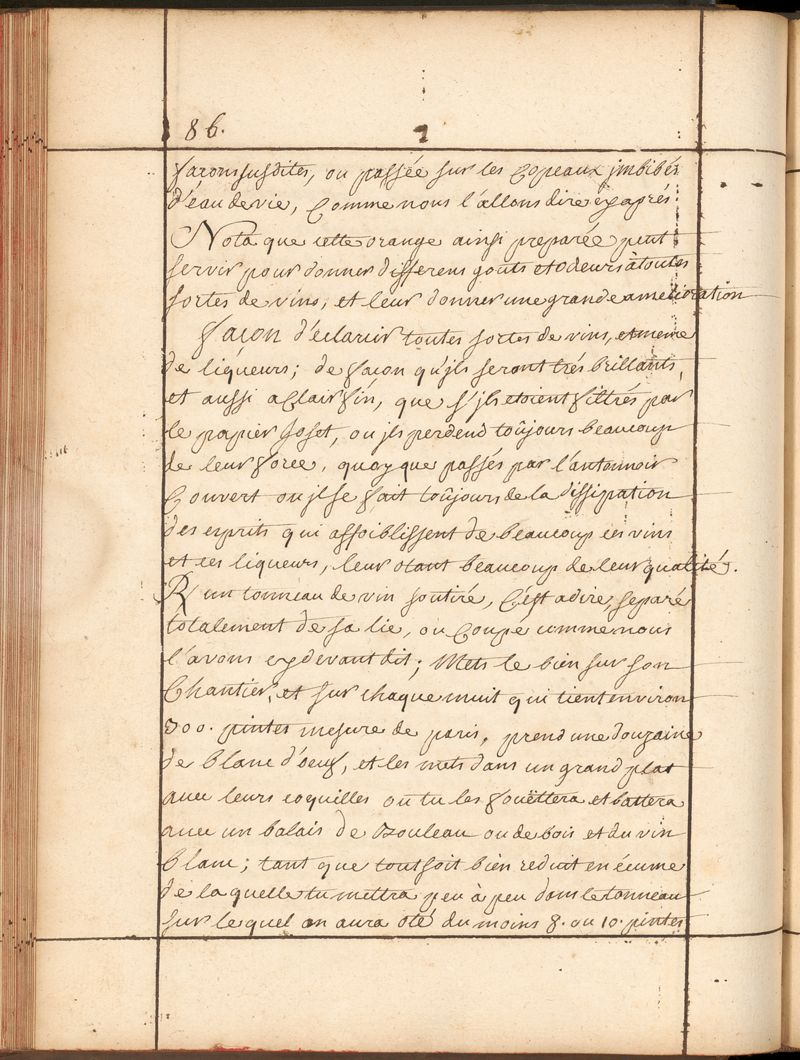 86.
facons susdites, ou passée sur les Copeaux jmbibés
d'éau de vie, Comme nous l'állons dire cy aprés.
Nota que cette orange ainsi preparée peut
servir pour donner differens gouts et odeurs à toutes
sortes de vins, et leur donner une grande amelioration
façon d'éclarcir toutes sortes de vins, et meme
de liqueurs; de façon qu'jls seront trés brillants,
et aussi a Clair fin, que s'jls etoient filtrés par
le papier Joset, ou jls perdend toûjours beaucoup
de leur force, quoy que passés par l'antonnoir
Couvert ou jl se fait toûjours de la dissipation
des esprits qui affoiblissent de beaucoup ces vins
et ces liqueurs, leur otant beaucoup de leur qualité.
R un tonneau de vin soutiré, C'ést a dire, separé
totalement de sa lie, ou Coupé comme nous
l'avons cy devant dit; Mets le bien sur son
Chantier, et sur chaque muit qui tient environ
300. pintes mesure de paris, prend une douzaine
de blanc d'oeuf, et les mets dans un grand plat
avec leurs coquilles ou tu les fouëttera et battera
avec un balais de Bouleau ou de bois et du vin
blanc; tant que tout soit bien reduit en écume
de la quelle tu mettra peu à peu dans le tonneau
sur le quel on aura oté du moins 8. ou 10. pintes